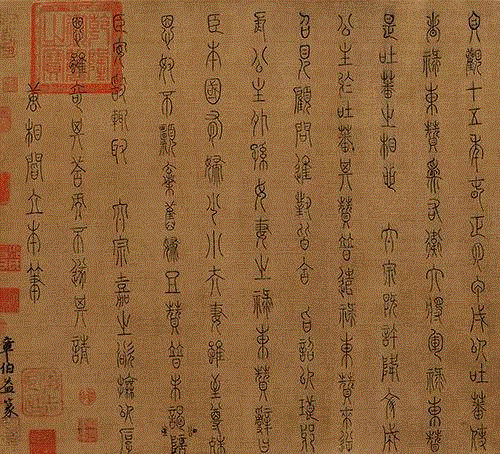 貞觀十五年春正月甲戌以吐蕃使
者祿東贊為右衛大將軍祿東贊
是吐蕃之相也 太宗既許降文成
公主於吐蕃其贊普遣祿東贊來逆
召見顧問進對皆合 旨詔以琅琊
長公主外孫女妻之祿東贊辭曰
臣本國有婦少小夫妻雖至尊殊
恩奴不願棄舊婦且贊普未謁陪
臣安敢輒取 太宗嘉之欲撫以厚
恩雖奇其答而不遂其請
唐相閻立本筆
章伯益篆